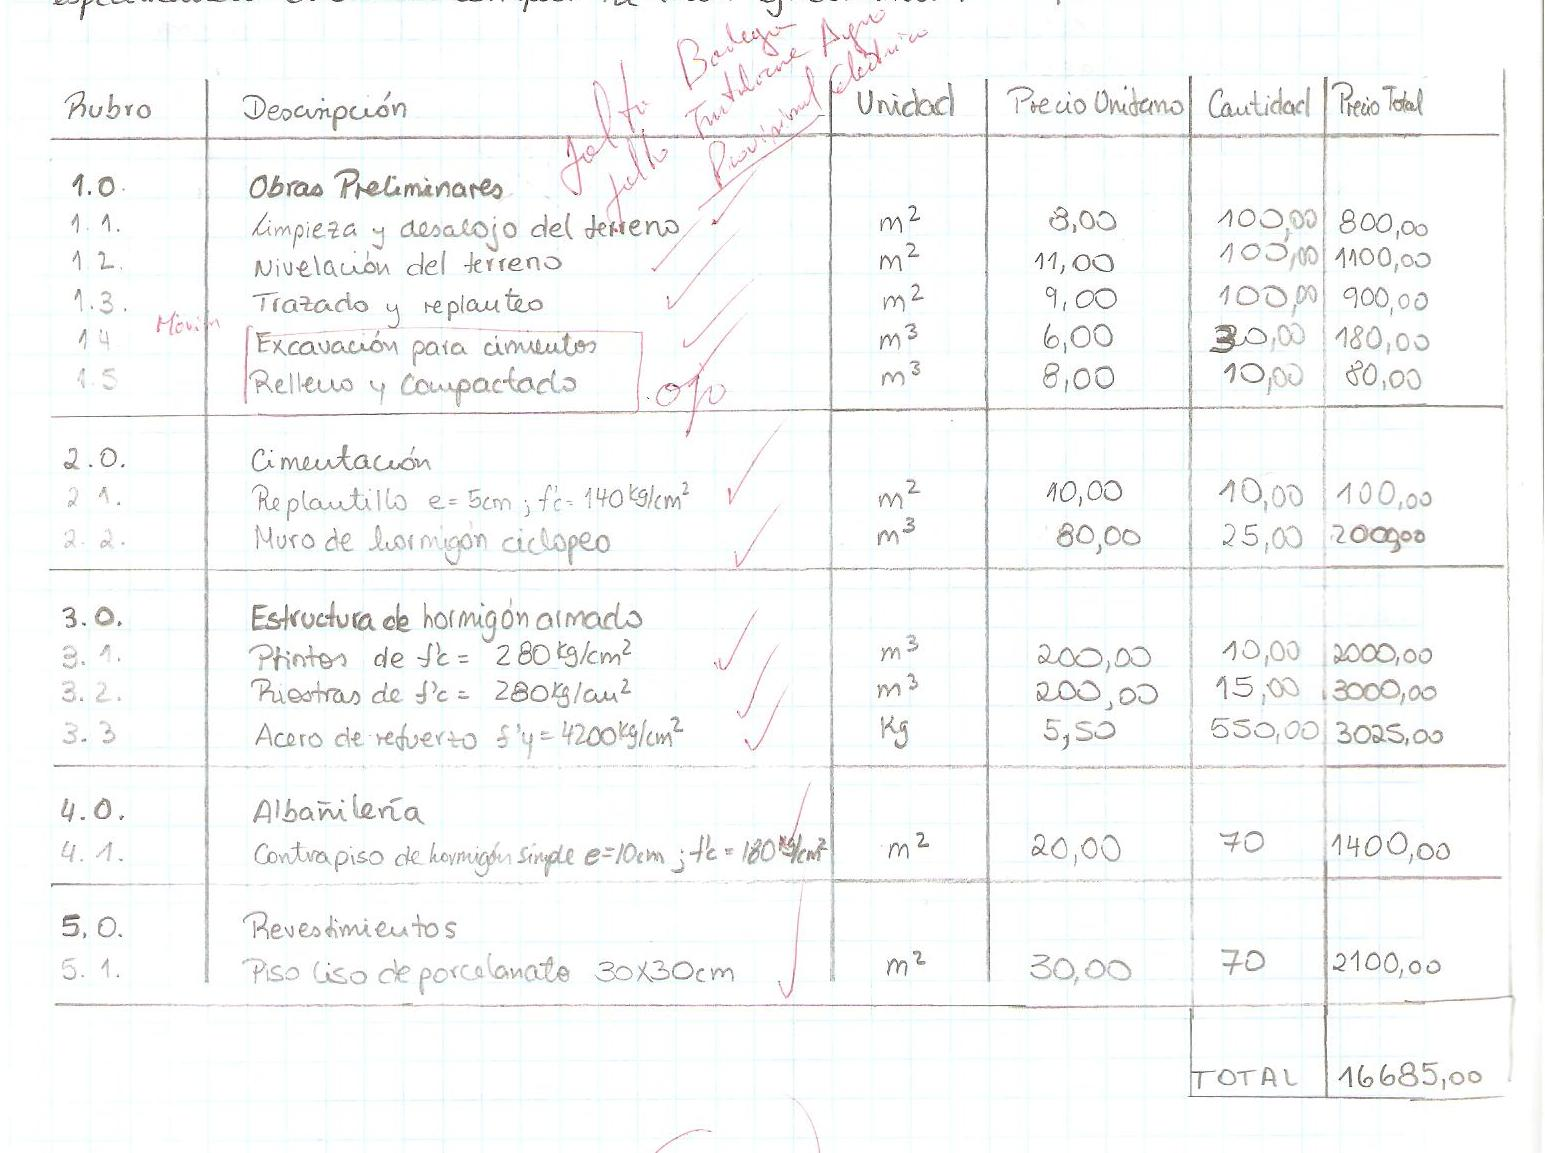 Falta Bodega
falta Instalacione Agua
Provisional Electrica
Rubro Descripción Unidad Precio Unitario Cantidad Precio Total
1.0. Obras Preliminares
1.1. Limpieza y desalojo del terreno m² 8,00 100,00 800,00
1.2. Nivelación del terreno m² 11,00 100,00 1100,00
1.3. Trazado y replanteo m² 9,00 100,00 900,00
Movim
1.4 Excavación para cimientos m³ 6,00 30,00 180,00
1.5 Relleno y Compactado m³ 8,00 10,00 80,00
ojo
2.0. Cimentación
2.1. Replantillo e=5cm; f'c=140kg/cm² m² 10,00 10,00 100,00
2.2. Muro de hormigón ciclopeo m³ 80,00 25,00 2000,00
3.0. Estructura de hormigón armado
3.1. Plintos de f'c= 280kg/cm² m³ 200,00 10,00 2000,00
3.2. Riostras de f'c= 280kg/cm² m³ 200,00 15,00 3000,00
3.3 Acero de refuerzo f'y=4200kg/cm² Kg 5,50 550,00 3025,00
4.0. Albañilería
4.1. Contrapiso de hormigón simple e=10cm; f'c=180kg/cm² m² 20,00 70 1400,00
5.0. Revestimientos
5.1. Piso liso de porcelanato 30x30cm m² 30,00 70 2100,00
TOTAL 16685,00